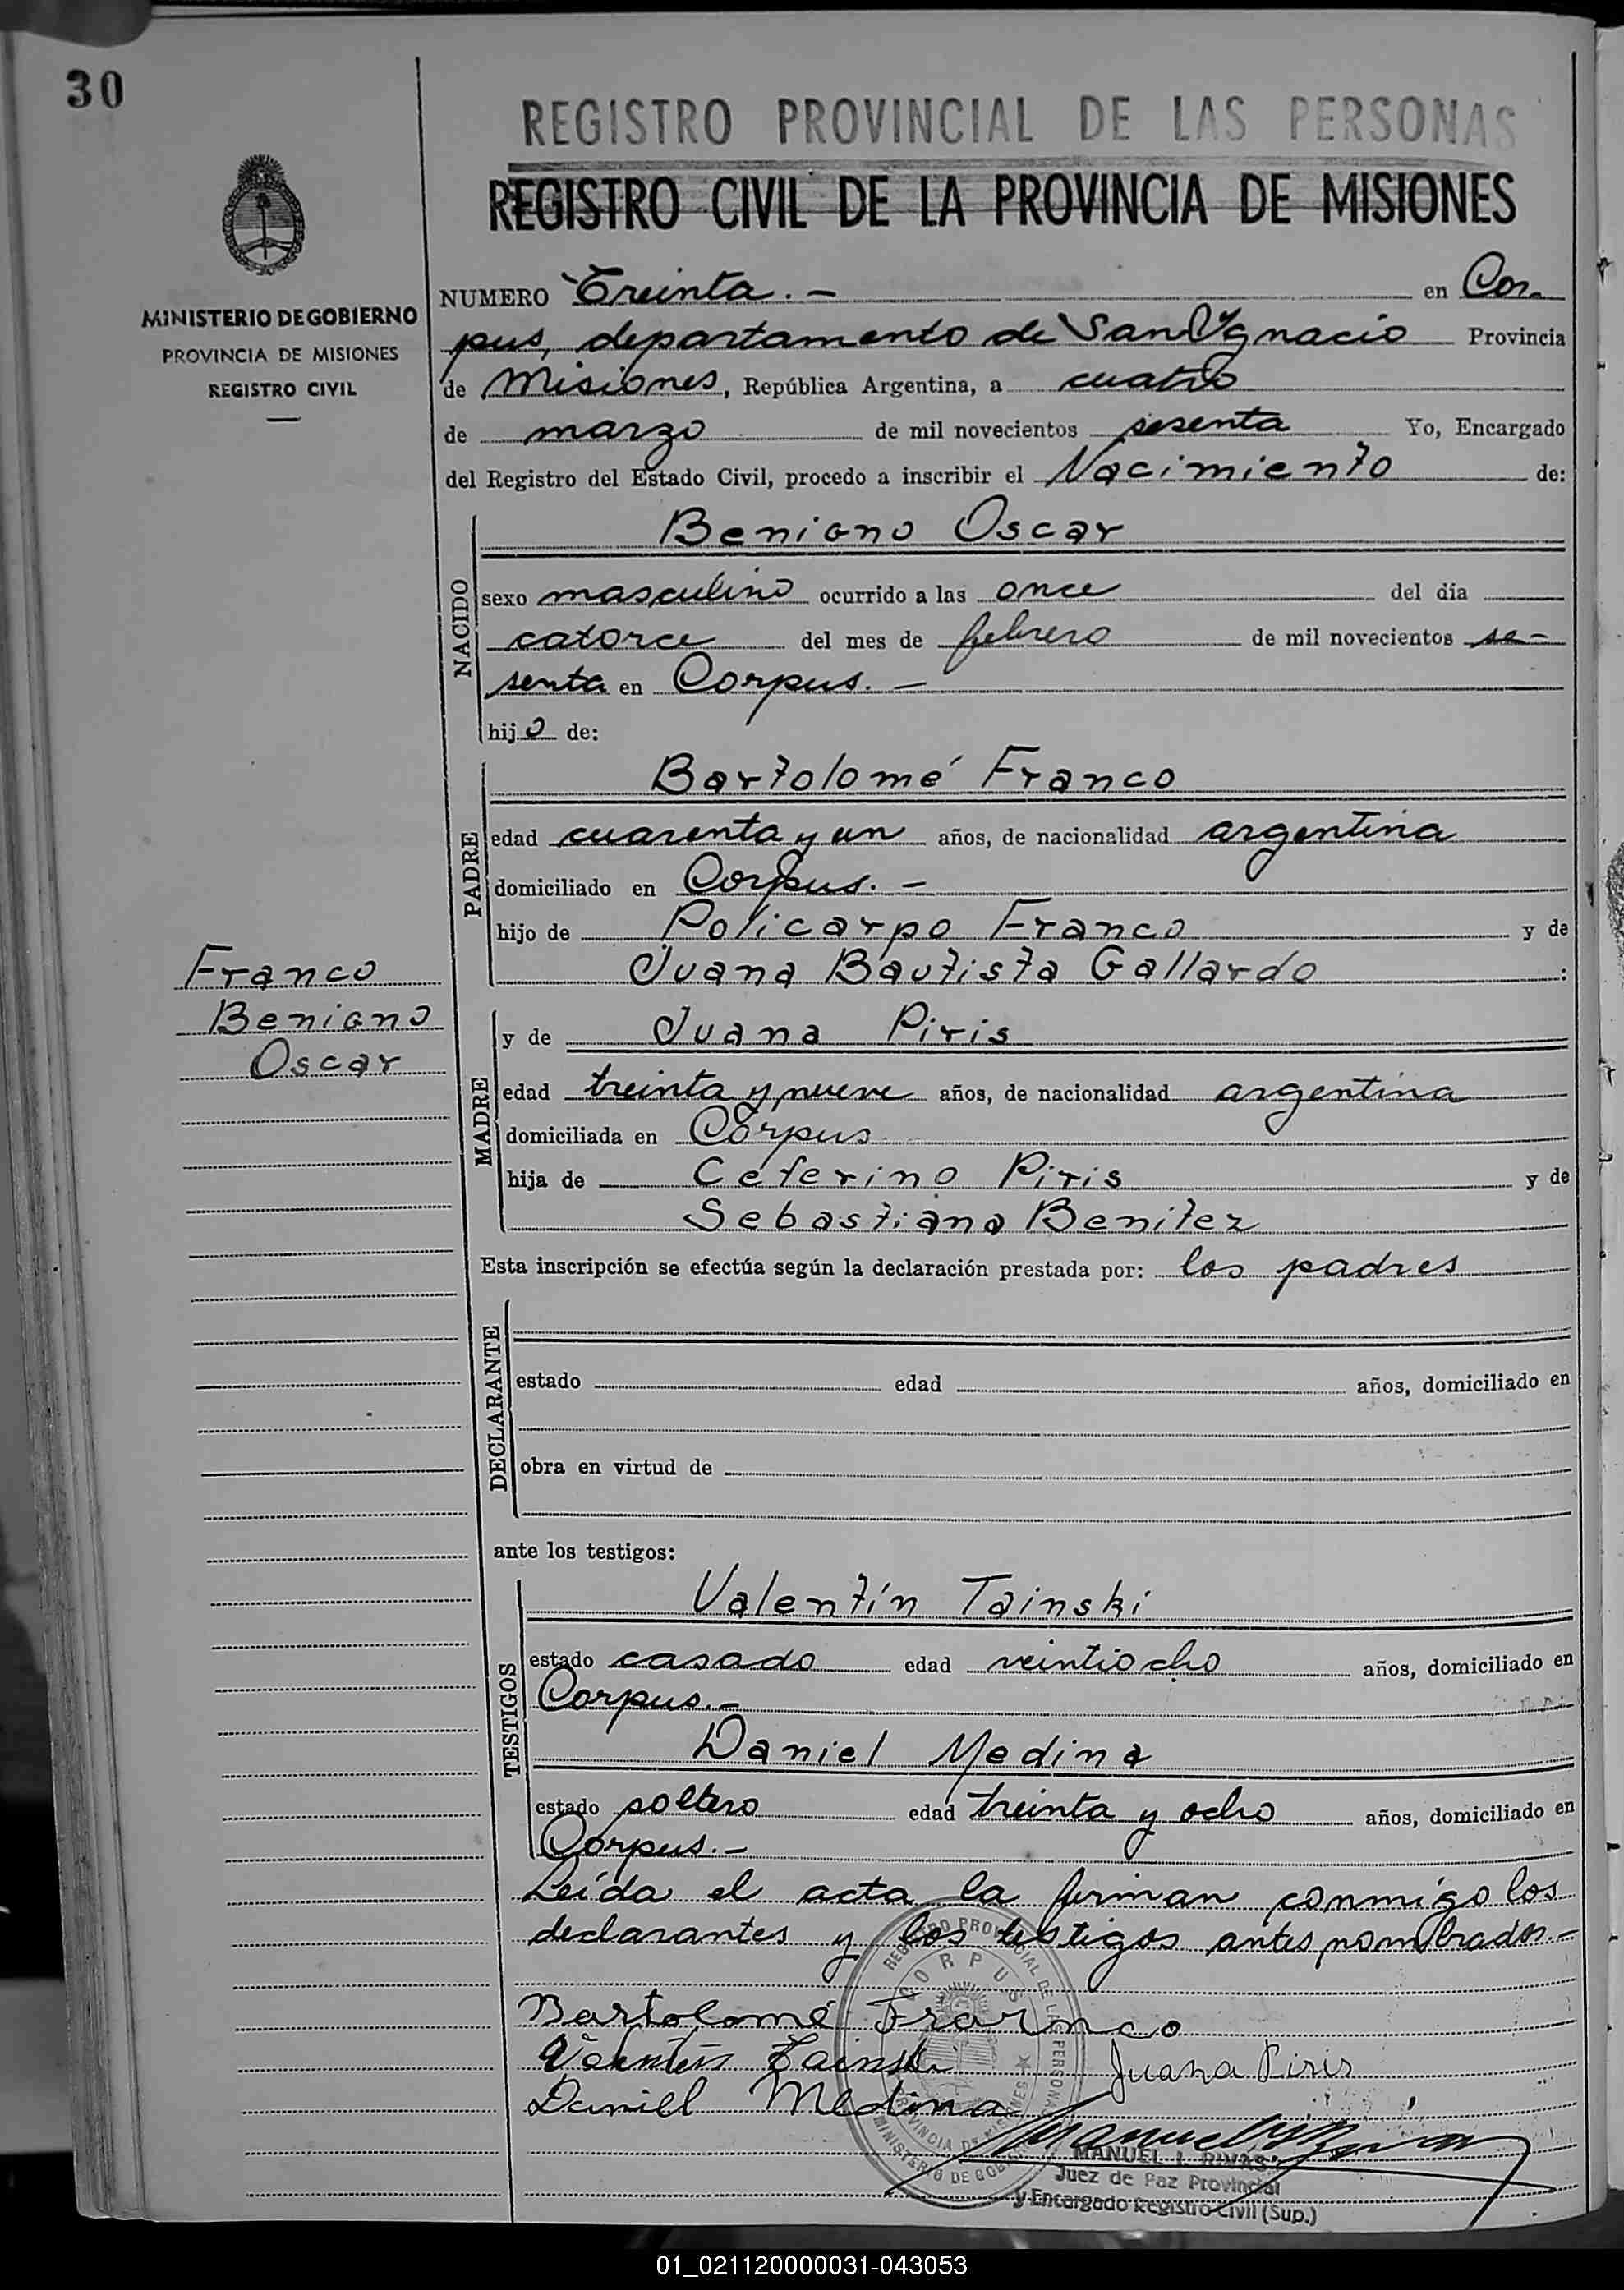 30
REGISTRO PROVINCIAL DE LAS PERSONAS
REGISTRO CIVIL DE LA PROVINCIA DE MISIONES
MINISTERIO DE GOBIERNO
PROVINCIA DE MISIONES
REGISTRO CIVIL
NUMERO Treinta.- en Cor-
pus, departamento de San Ygnacio Provincia
de Misiones, República Argentina, a cuatro
de marzo de mil novecientos sesenta Yo, Encargado
del Registro del Estado Civil, procedo a inscribir el Nacimiento de:
NACIDO
Benigno Oscar
sexo masculino ocurrido a las once del día
catorce del mes de febrero de mil novecientos se-
senta en Corpus.-
hijo de:
PADRE
Bartolomé Franco
edad cuarenta y un años, de nacionalidad argentina
domiciliado en Corpus.-
hijo de Policarpo Franco y de
Juana Bautista Gallardo :
Franco
Benigno
Oscar
MADRE
y de Juana Piris
edad treinta y nueve años, de nacionalidad argentina
domiciliada en Corpus
hija de Ceferino Piris y de
Sebastiana Benitez
Esta inscripción se efectúa según la declaración prestada por: los padres
DECLARANTE
estado edad años, domiciliado en
obra en virtud de
ante los testigos:
TESTIGOS
Valentín Tainski
estado casado edad veintiocho años, domiciliado en
Corpus.-
Daniel Medina
estado soltero edad treinta y ocho años, domiciliado en
Corpus.-
Leída el acta la firman conmigo los
declarantes y los testigos antes nombrados.-
REGISTRO PROVINCIAL DE LAS PERSONAS
CORPUS
PROVINCIA DE MISIONES
MINISTERIO DE GOBIERNO
Bartolomé Framco
Valentín Tainski Juana Piris
Daniel Medina
MANUEL I. RIVAS
Juez de Paz Provincial
y Encargado Registro Civil (Sup.)
01_021120000031-043053